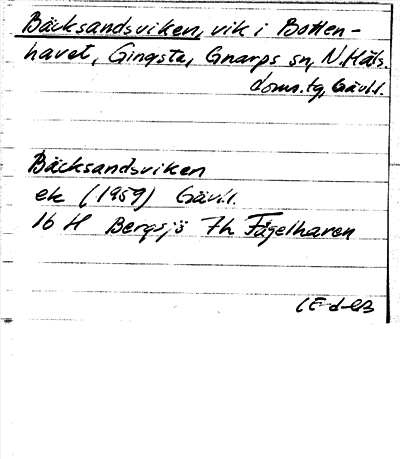 Bäcksandsviken, vik i Botten-
havet, Gingsta, Gnarps sn, N. Häls.
doms.tg, Gävl.l.
Bäcksandsviken
ek (1959) Gävl.l.
16 H Bergsjö 7h Fågelharen